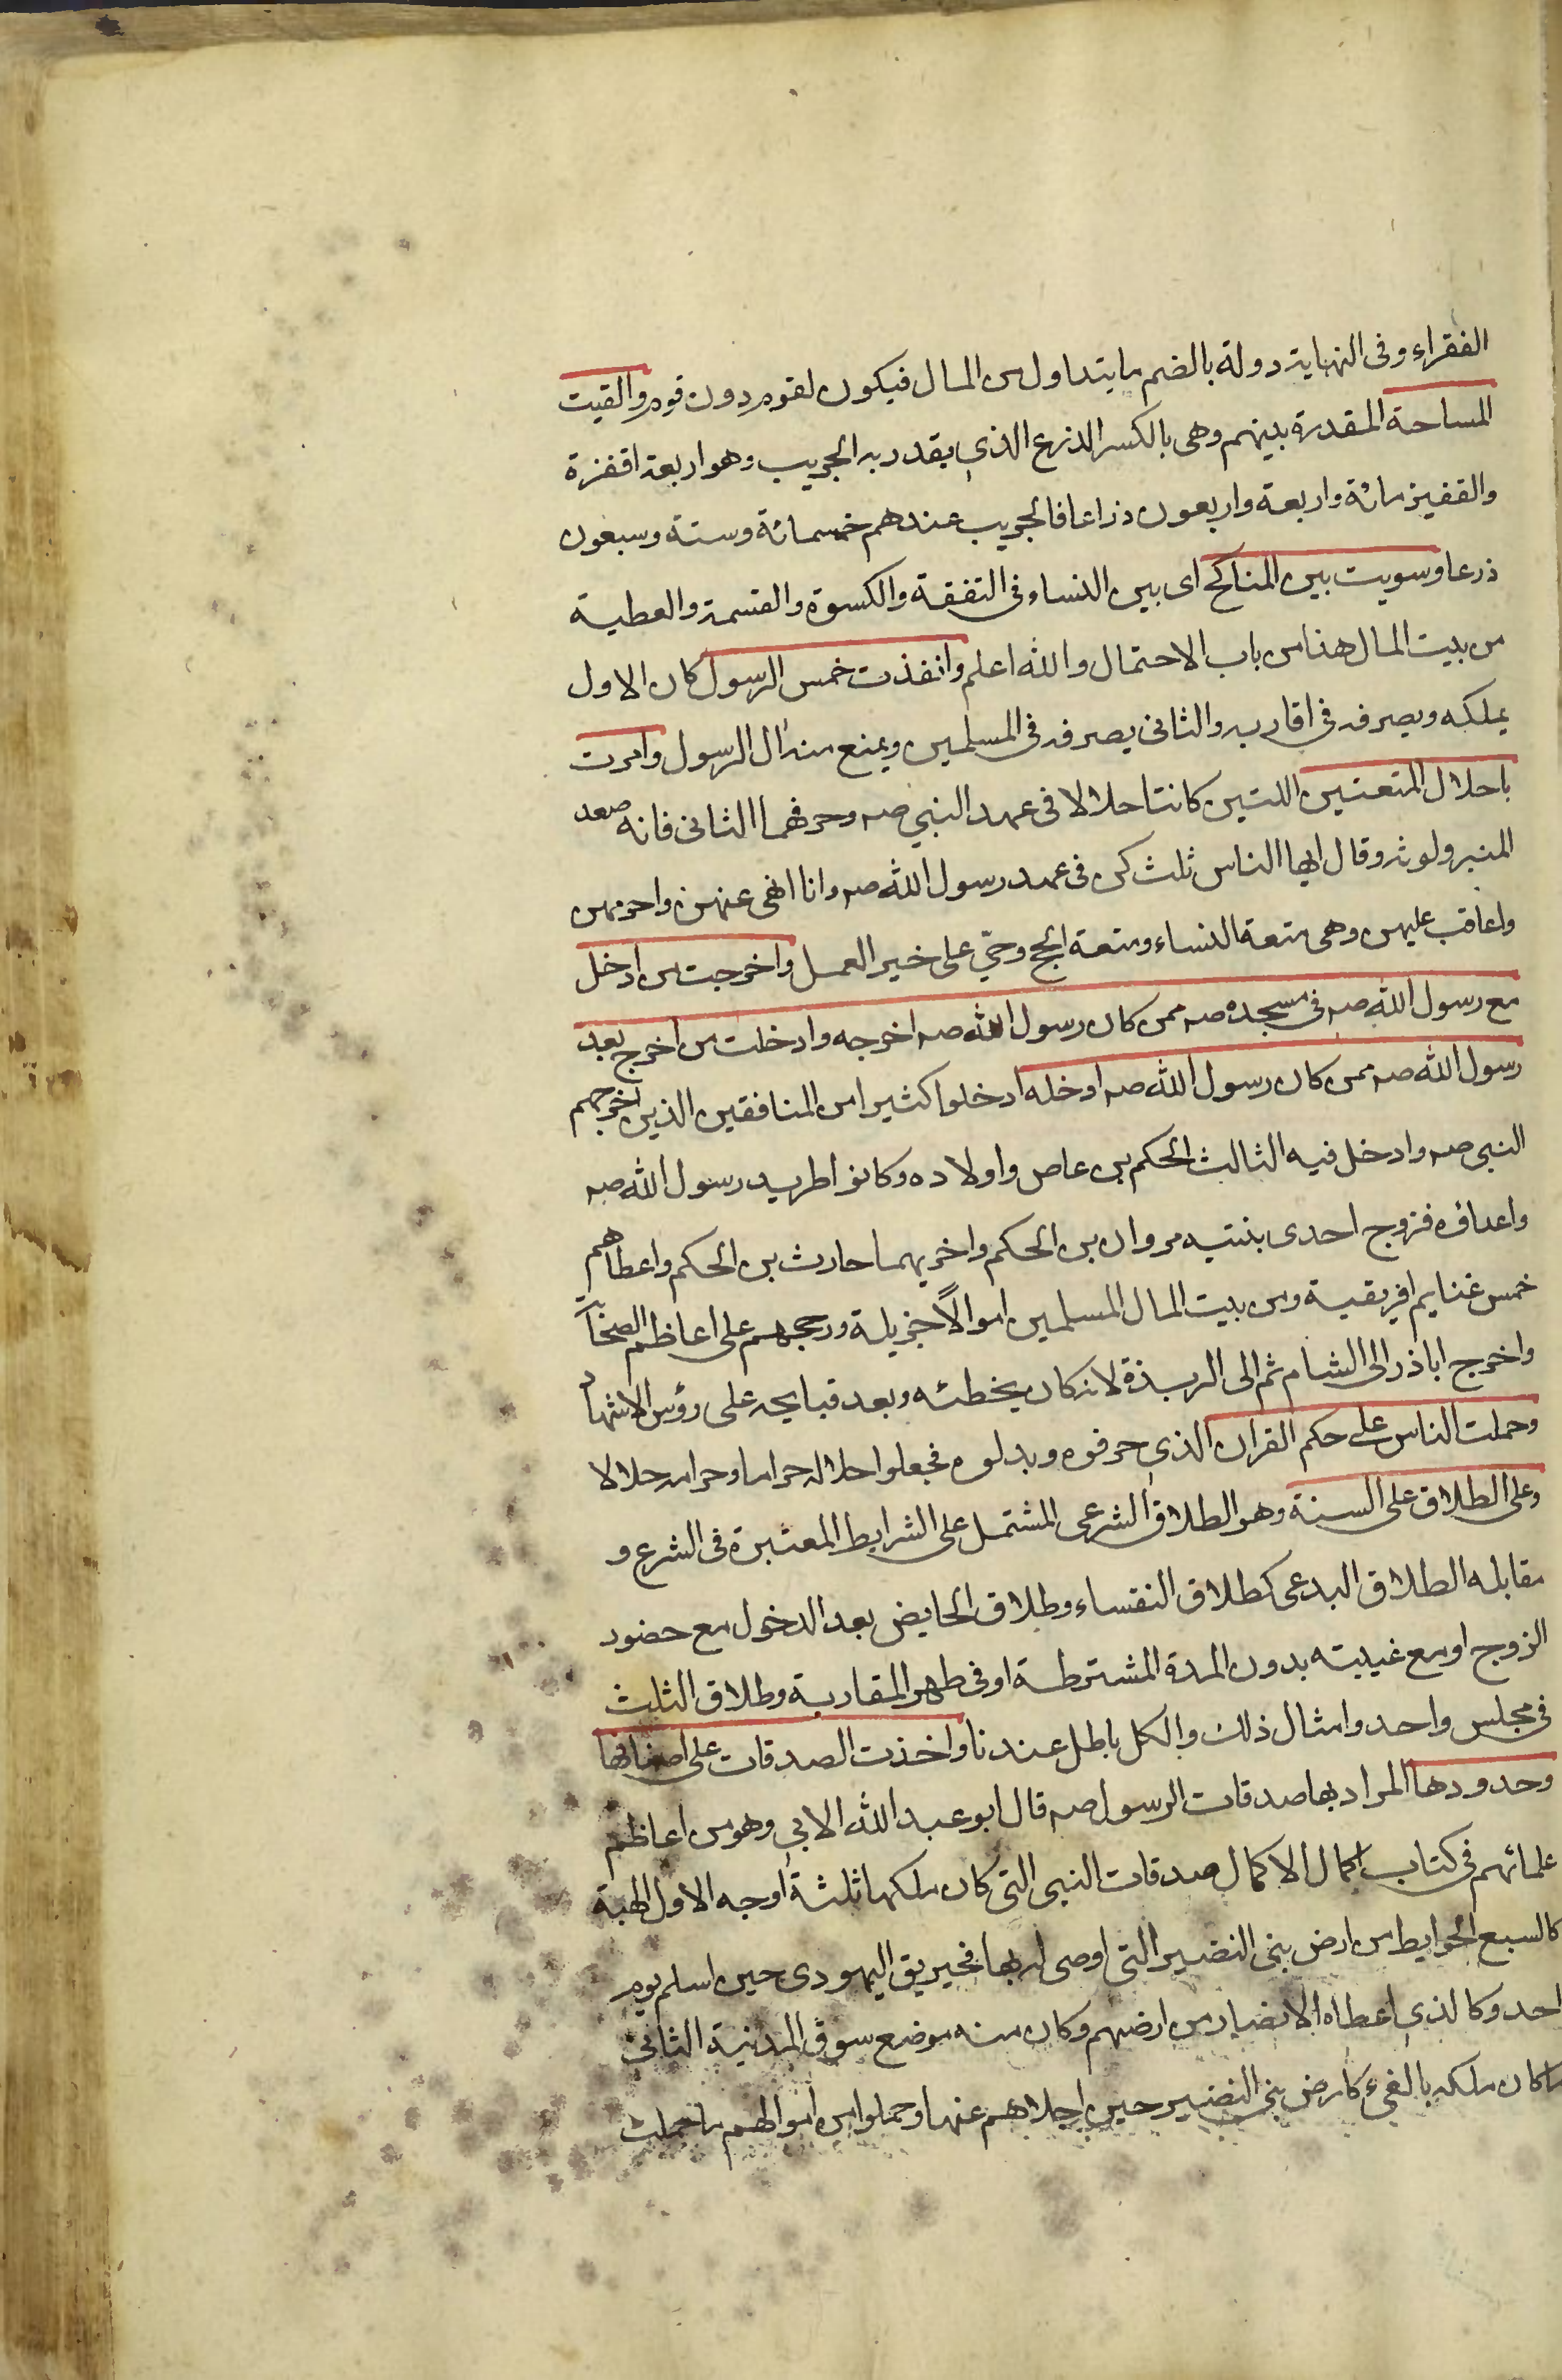 الفقراء وفى النهاية دولة بالضم ما يتداول من المال فيكون لقوم دون قوم والقيت
المساحة المقدرة بينهم وهى بالكسر الذرع الذي يقدر به الجريب وهو اربعة اقفزة
والقفيز مائة واربعة واربعون ذراعا فالجريب عندهم خمسمائة وستة وسبعون
ذرعا وسويت بين المناكح اى بين النساء فى النفقة والكسوة والقسمة والعطية
من بيت المال هذا من باب الاحتمال والله اعلم وانفذت خمس الرسول كان الاول
يملكه ويصرفه فى اقاربه والثانى يصرفه فى المسلمين ويمنع منه ال الرسول وامرت
باحلال المتعتين اللتين كانتا حلالا فى عهد النبي صه وحرفهما الثانى فانه صعد
المنبر ولوثه وقال ايها الناس ثلث كن فى عهد رسول الله صه وانا انهى عنهن واحرمهن
واعاقب عليهن وهى متعة النساء ومتعة الحج وحي على خير العمل واخرجت من ادخل
مع رسول الله صه فى مسجده صه ممن كان رسول الله صه اخرجه وادخلت من اخرج بعد
رسول الله صه ممن كان رسول الله صه ادخله ادخلوا كثيرا من المنافقين الذين اخرجهم
النبى صه وادخل فيه الثالث الحكم بن عاص واولاده وكانوا طريد رسول الله صه
واعداؤه فزوج احدى بنتيه مروان بن الحكم واخريهما حارث بن الحكم واعطاهم
خمس غنايم افريقية ومن بيت المال المسلمين اموالاً جزيلة ورجحهم على اعاظم الصحابة
واخرج اباذر الى الشام ثم الى الربذة لانه كان يخطئه ويعد قبايحه على رؤس الاشهاد
وحملت الناس على حكم القران الذي حرفوه وبدلوه فجعلوا حلاله حراما وحرامه حلالا
وعلى الطلاق على السنة وهو الطلاق الشرعى المشتمل على الشرايط المعتبرة فى الشرع و
مقابله الطلاق البدعى كطلاق النفساء وطلاق الحايض بعد الدخول مع حضور
الزوج او مع غيبته بدون المدة المشترطة او فى طهر المقاربة وطلاق الثلث
فى مجلس واحد وامثال ذلك والكل باطل عندنا واخذت الصدقات على اصنافها
وحدودها المراد بها صدقات الرسول صه قال ابو عبد الله الابي وهو من اعاظم
علمائهم فى كتاب اكمال الاكمال صدقات النبى التى كان ملكها ثلثة اوجه الاول الهبة
كالسبع الحوايط من ارض بنى النضير التى اوصى له بها مخيريق اليهودى حين اسلم يوم
احد وكالذي اعطاه الانصار من ارضهم وكان منه موضع سوق المدينة الثانى
ما كان ملكه بالفيء كارض بنى النضير حين اجلاهم عنها وحملوا من اموالهم ما حملت